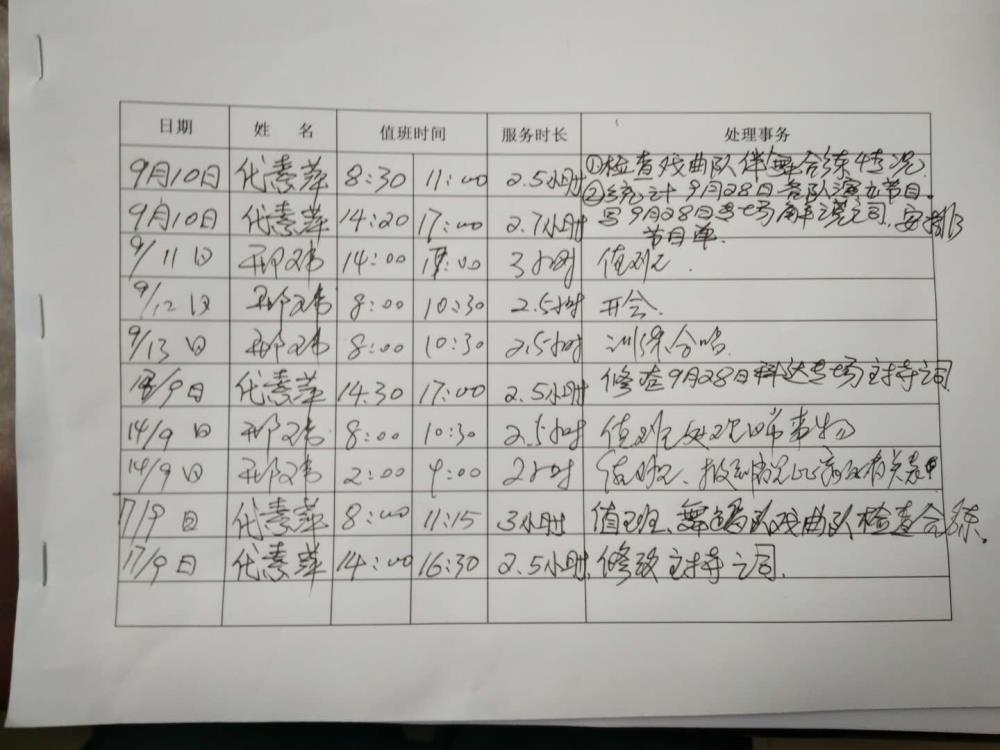 日期 姓 名 值班时间 服务时长 处理事务
9月10日 代素萍 8:30 11:00 2.5小时 ①检查戏曲队伴舞合练情况
②统计9月28日各队演出节目。
9月10日 代素萍 14:20 17:00 2.7小时 写9月28日专场解说词,安排
节目单.
9/11日 邢玮 14:00 17:00 3小时 值班.
9/12日 邢玮 8:00 10:30 2.5小时 开会.
9/13日 邢玮 8:00 10:30 2.5小时 训练合唱.
13/9日 代素萍 14:30 17:00 2.5小时 修查9月28日 专场主持词
14/9日 邢玮 8:00 10:30 2.5小时 值班处理日常事物
14/9日 邢玮 2:00 4:00 2小时 值班、 有关表
17/9日 代素萍 8:00 11:15 3小时 值班、舞蹈队戏曲队检查合练.
17/9日 代素萍 14:00 16:30 2.5小时 修改主持词.